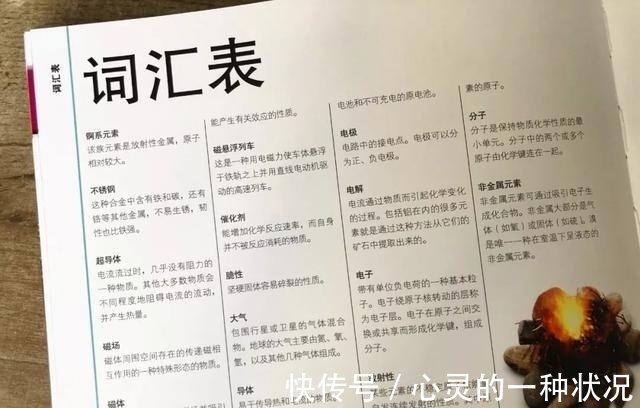 词汇表
词汇表
锕系元素
该族元素是放射性金属，原子
相对较大。
不锈钢
这种合金中含有铁和碳，还有
铬等其他金属，不易生锈，韧
性也比铁强。
超导体
电流流过时，几乎没有阻力的
一种物质。其他大多数物质会
不同程度地阻碍电流的流动，
并产生热量。
磁场
磁体周围空间存在的传递磁相
互作用的一种特殊形态的物质。
磁体
能产生有关效应的性质。
磁悬浮列车
这是一种用电磁力使车体悬浮
于铁轨之上并用直线电动机驱
动的高速列车。
催化剂
能增加化学反应速率，而自身
并不被反应消耗的物质。
脆性
坚硬固体容易碎裂的性质。
大气
包围行星或卫星的气体混合
物。地球的大气主要由氮、氧、
氩，以及其他几种气体组成。
导体
易于传导热和电流的物质。
电池和不可充电的原电池。
电极
电路中的接电点。电极可以分
为正、负电极。
电解
电流通过物质而引起化学变化
的过程。包括铝在内的很多元
素就是通过这种方法从它们的
矿石中提取出来的。
电子
带有单位负电荷的一种基本粒
子。电子绕原子核转动的层称
为电子层。电子在原子之间交
换或共享而形成化学键，组成
分子。
放射性
自发连续发射的性质。
素的原子。
分子
分子是保持物质化学性质的最
小单元。分子中的两个或多个
原子由化学键连在一起。
非金属元素
非金属元素可通过吸引电子生
成化合物。非金属大部分是气
体（如氧）或固体（如硫）。溴
是唯一一种在室温下呈液态的
非金属元素。
快传号 / 心灵的一种状况